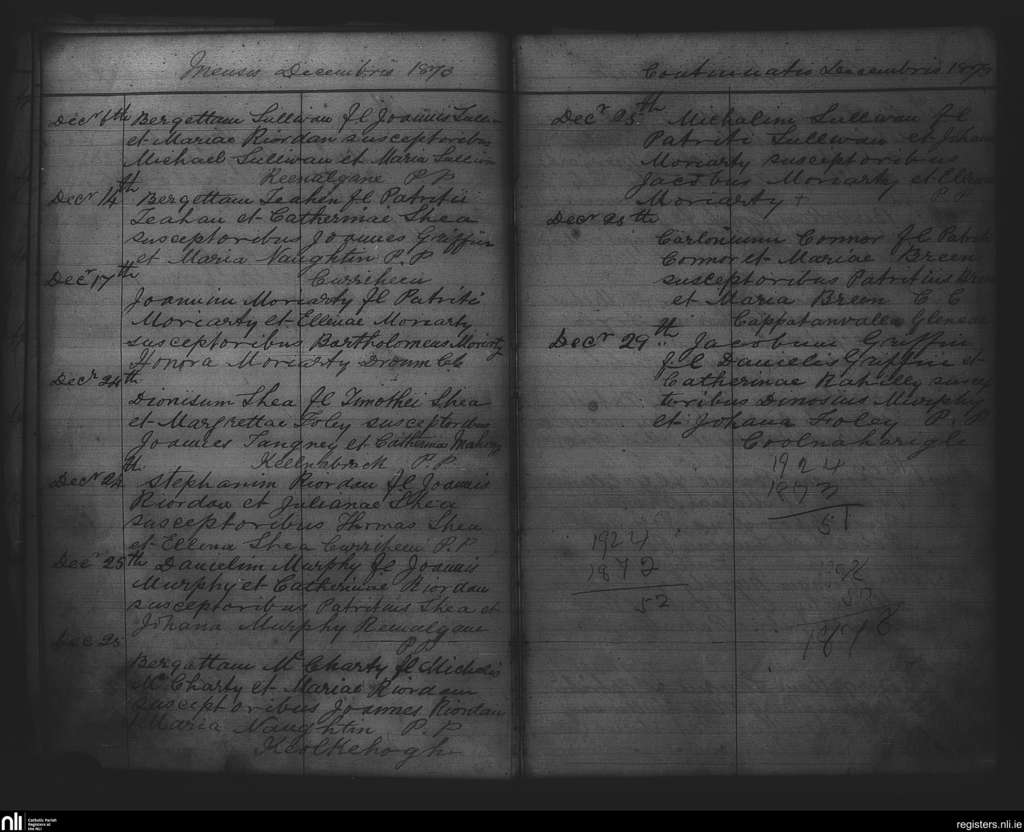 Mensis Decembris 1873
Decr 6th Bergettam Sullivan fl Joannis Sulli
et Mariae Riordan susceptoribus
Michael Sullivan et Maria Sullivan
Keenalgane P P
Decr 14th Bergettam Teahen fl Patritii
Teahan et Catherinae Shea
susceptoribus Joannes Griffin
et Maria Naughtin P. P
Curriheen
Decr 17th
Joannim Moriarty fl Patriti
Moriarty et Ellenae Moriarty
susceptoribus Bartholomeas Moriarty
Honora Moriarty Dromm
Decr 24th
Dionisum Shea fl Timothei Shea
et Margrettae Foley susceptoribus
Joannes Tangney et Catherina Mahony
Keelnabrack P. P.
Decr 24th Stephanim Riordan fl Joannis
Riordan et Julianae Shea
susceptoribus Thomas Shea
et Ellena Shea Curriheen P. P
Decr 25th Danielim Murphy fl Joannis
Murphy et Catherinae Riordan
susceptoribus Patritius Shea et
Johana Murphy Kenalgane
P. P
Dec 25
Bergettam Mc Charty fl Michelis
Mc Charty et Mariae Riordan
susceptoribus Joannes Riordan
Maria Naughtin P. P
Keolkehogh
Continuatis Decembris 1873
Decr 25th Michalim Sullivan fl
Patriti Sullivan et Johan
Moriarty susceptoribus
Jacobus Moriarty et Ellen
Moriarty +
Decr 28th
Carlonumm Connor fl Patrit
Connor et Mariae Breen
susceptoribus Patritius
et Maria Breen C C
Cappatanvalla
Decr 29th Jacobum Griffin
fl Danielis Griffin et
Catherinae Rahilley suscep
toribus Dinosius Murphy
et Johana Foley P. P
Coolnaharigle
1924
1873
51
1924
1872
52